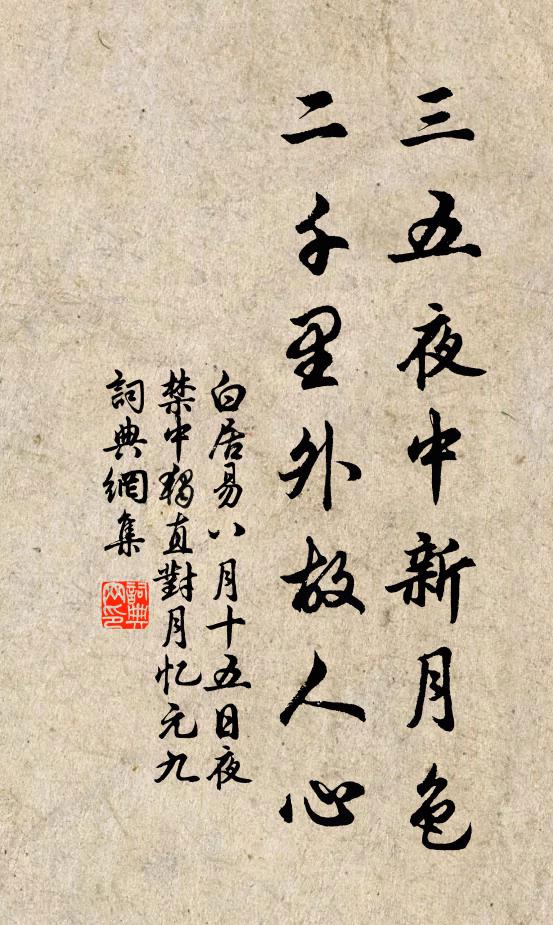 三五夜中新月色
二千里外故人心
白居易八月十五日夜
禁中獨直對月忆元九
詞典網集
詞典网印